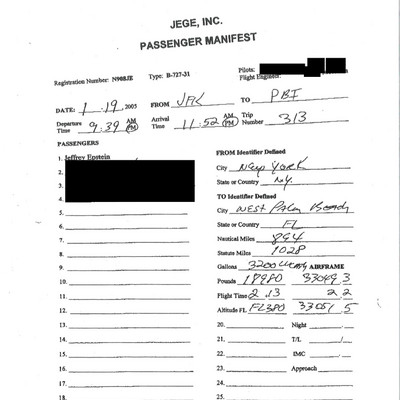 JEGE, INC.
PASSENGER MANIFEST
Pilots:
Registration Number: N908JE Type: B-727-31 Flight Engineer:
DATE: 1 . 19 , 2005 FROM JFK TO PBI
Departure Time 9:39 AM PM Arrival Time 11:52 AM PM Trip Number 313
PASSENGERS
1. Jeffrey Epstein
2.
3.
4.
5.
6.
7.
8.
9.
10.
11.
12.
13.
14.
15.
16.
17.
18.
FROM Identifier Defined
City New York
State or Country N.Y.
TO Identifier Defined
City West Palm Beach
State or Country FL
Nautical Miles 894
Statute Miles 1028
Gallons 3200 AIRFRAME
Pounds 17980 33049 3
Flight Time 2 . 13 2 2
Altitude FL FL380 33051 5
20. Night
21. T/L /
22. IMC /
23. Approach
24.
25.